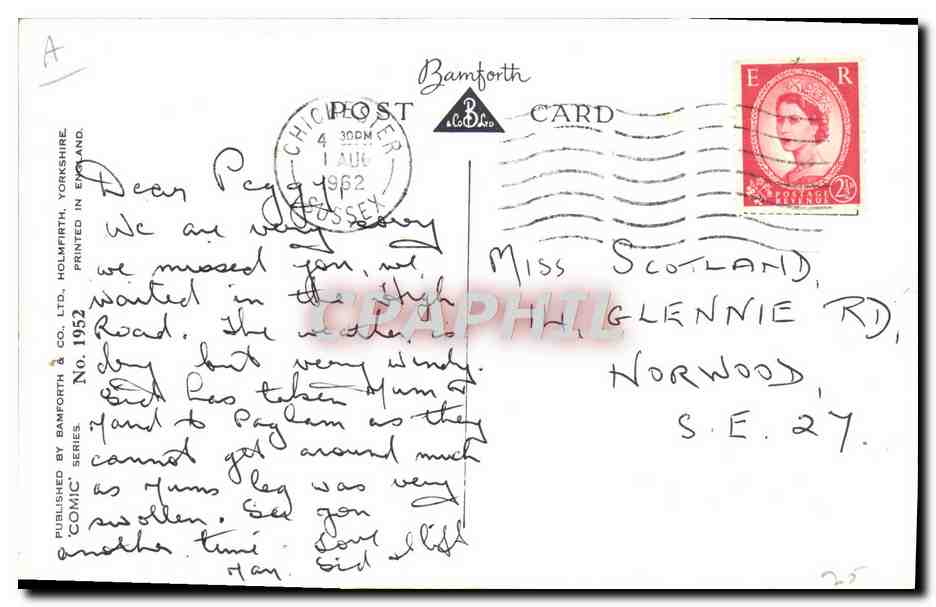 A
Bamforth
POST CARD
B
& Co LTD
CHICHESTER
4 30PM
1 AUG
1962
SUSSEX
E R
POSTAGE
REVENUE
2½D
PUBLISHED BY BAMFORTH & CO. LTD., HOLMFIRTH, YORKSHIRE.
'COMIC' SERIES. No. 1952 PRINTED IN ENGLAND.
Dear Peggy,
We are very sorry
we missed you, we
waited in the High
Road. The weather is
dry but very windy.
Sid has taken Mum &
to Pagham as they
cannot get around much
as Mums leg was very
swollen. See you
another time. Love
Sid &
MISS SCOTLAND,
14, GLENNIE RD,
NORWOOD,
S.E. 27.
CPAPHIL
25